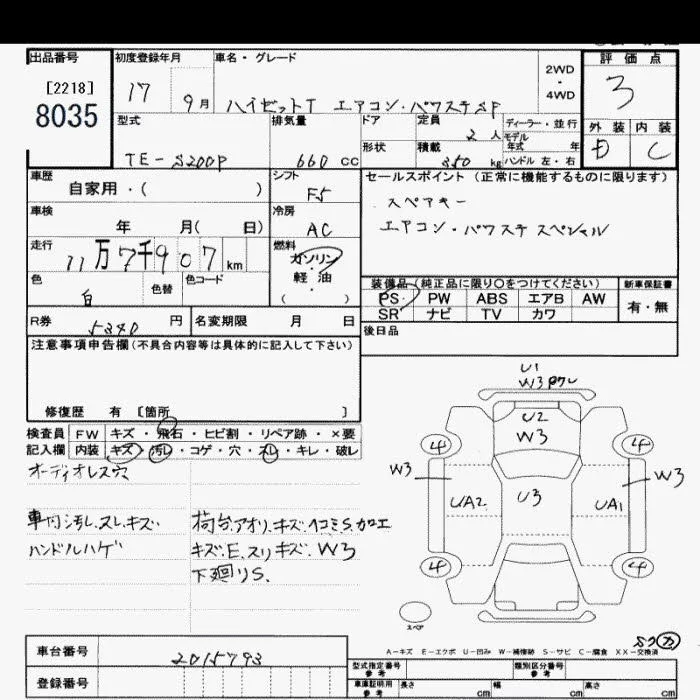 出品番号
[2218]
8035
初度登録年月
17 9月
車名・グレード
ハイゼットT エアコン・パワステSP
2WD
・
4WD
評価点
3
外装 内装
D C
型式
TE-S200P
排気量
660 cc
ドア
形状
定員
2人
積載
350 kg
ディーラー・並行
モデル
年式 年
ハンドル 左・右
車歴
自家用・( )
シフト
F5
車検
年 月( 日)
冷房
AC
走行
11万7千907km
燃料
ガソリン
軽・油
( )
色
白
色替
色コード
R券
5340円
名変期限 月 日
セールスポイント(正常に機能するものに限ります)
スペアキー
エアコン・パワステ スペシャル
装備品(純正品に限り○をつけてください)
PS PW ABS エアB AW
SR ナビ TV カワ
新車保証書
有・無
後日品
注意事項申告欄(不具合内容等は具体的に記入して下さい)
修復歴 有 [箇所 ]
検査員
記入欄
FW キズ・飛石・ヒビ割・リペア跡・×要
内装 キズ・汚レ・コゲ・穴・スレ・キレ・破レ
オーディオレス穴
車内汚レ.スレ.キズ
ハンドルハゲ
荷台.アオリ.キズ.凹コミS.加工
キズ.E.スリキズ.W3
下廻りS.
U1
W3
U2
W3
4 4
W3 W3
UA2 U3 UA1
4 4
スペア
A-キズ E-エクボ U-凹み W-補修跡 S-サビ C-腐食 XX-交換済
車台番号
2015793
登録番号
型式指定番号
参考
類別区分番号
参考
車庫証明用
参考
長さ cm 幅 cm 高さ cm